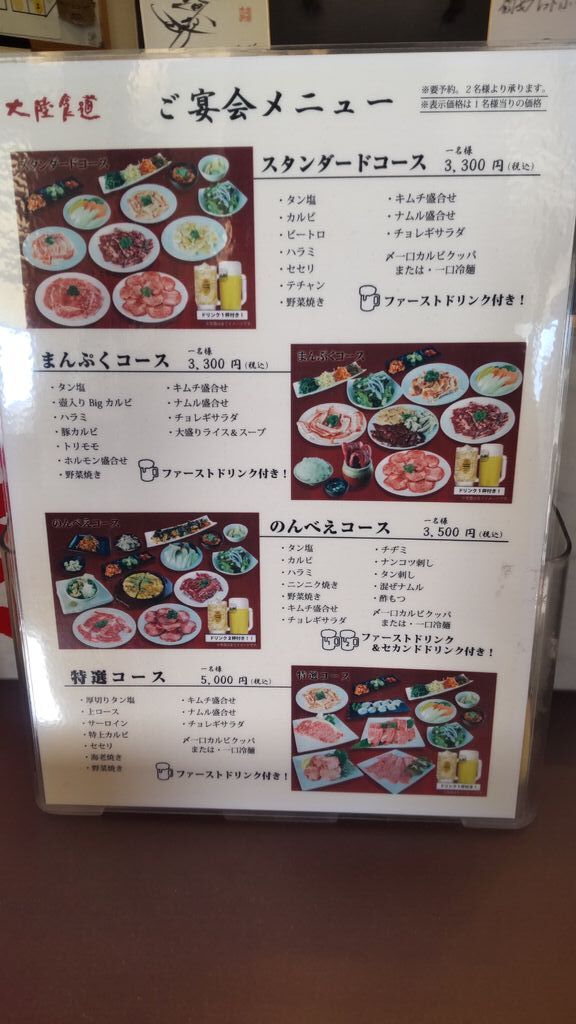 大陸食道
ご宴会メニュー
※要予約。2名様より承ります。
※表示価格は1名様当りの価格
スタンダードコース
スタンダードコース 一名様 3,300 円(税込)
・タン塩
・カルビ
・ピートロ
・ハラミ
・セセリ
・テチャン
・野菜焼き
・キムチ盛合せ
・ナムル盛合せ
・チョレギサラダ
〆一口カルビクッパ
または・一口冷麺
ファーストドリンク付き！
ドリンク1杯付き！
まんぷくコース 一名様 3,300 円(税込)
・タン塩
・壺入り Big カルビ
・ハラミ
・豚カルビ
・トリモモ
・ホルモン盛合せ
・野菜焼き
・キムチ盛合せ
・ナムル盛合せ
・チョレギサラダ
・大盛りライス＆スープ
ファーストドリンク付き！
まんぷくコース
ドリンク1杯付き！
のんべえコース
ドリンク2杯付き！！
のんべえコース 一名様 3,500 円(税込)
・タン塩
・カルビ
・ハラミ
・ニンニク焼き
・野菜焼き
・キムチ盛合せ
・チョレギサラダ
・チヂミ
・ナンコツ刺し
・タン刺し
・混ぜナムル
・酢もつ
〆一口カルビクッパ
または・一口冷麺
ファーストドリンク
＆セカンドドリンク付き！
特選コース 一名様 5,000 円(税込)
・厚切りタン塩
・上ロース
・サーロイン
・特上カルビ
・セセリ
・海老焼き
・野菜焼き
・キムチ盛合せ
・ナムル盛合せ
・チョレギサラダ
〆一口カルビクッパ
または・一口冷麺
ファーストドリンク付き！
特選コース
ドリンク1杯付き！